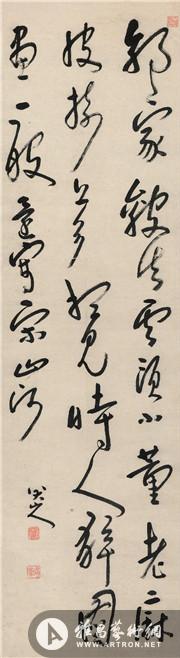 郭家皴法云頭小董老麻
皮樹上多想見時人解圖
畫一峰還寫宋山河
八大山人
雅昌藝術網